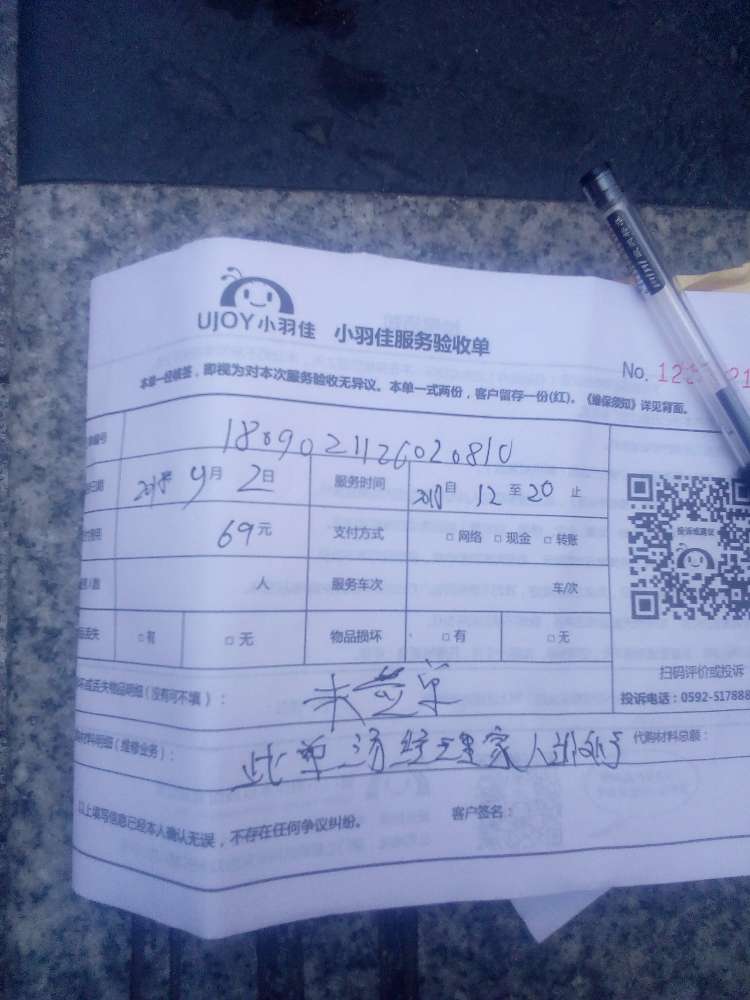 UJOY小羽佳 小羽佳服务验收单
No. 12
本单一经核签，即视为对本次服务验收无异议。本单一式两份，客户留存一份(红)。《维保须知》详见背面。
编号 1809021126020810
日期 2018年9月2日 服务时间 2018自 12 至 20 止
费用 69元 支付方式 □网络 □现金 □转账
人数 人 服务车次 车/次
丢失 □有 □无 物品损坏 □有 □无
投诉或建议
扫码评价或投诉
投诉电话：0592-517888
坏或丢失物品明细（没有可不填）： 未签单
材料明细（维修业务）： 此单 家人 代购材料总额：
以上填写信息已经本人确认无误，不存在任何争议纠纷。 客户签名：